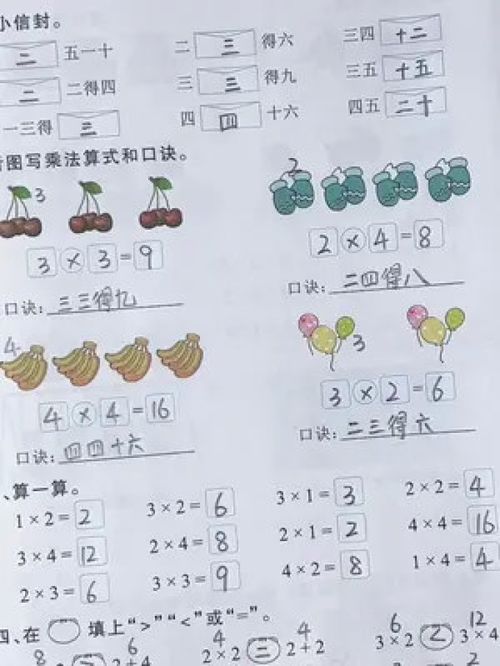 小信封。
二 五一十 二 三 得六 三四 十二
二 二得四 三 三 得九 三五 十五
一三得 三 四 四 十六 四五 二十
看图写乘法算式和口诀。
3 2
3×3=9 2×4=8
口诀: 三三得九 口诀: 二四得八
4 3
4×4=16 3×2=6
口诀: 四四十六 口诀: 二三得六
、算一算。
1×2=2 3×2=6 3×1=3 2×2=4
3×4=12 2×4=8 2×1=2 4×4=16
2×3=6 3×3=9 4×2=8 1×4=4
四、在 填上“>”“<”或“=”。
8 6 4 4 6 12
2+4 2×2 = 2+2 3×2